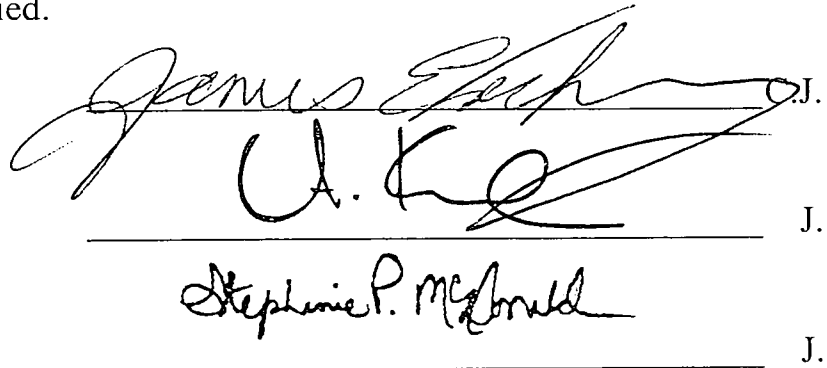 ied.
James C.J.
J.
Stephanie P. McDonald
J.